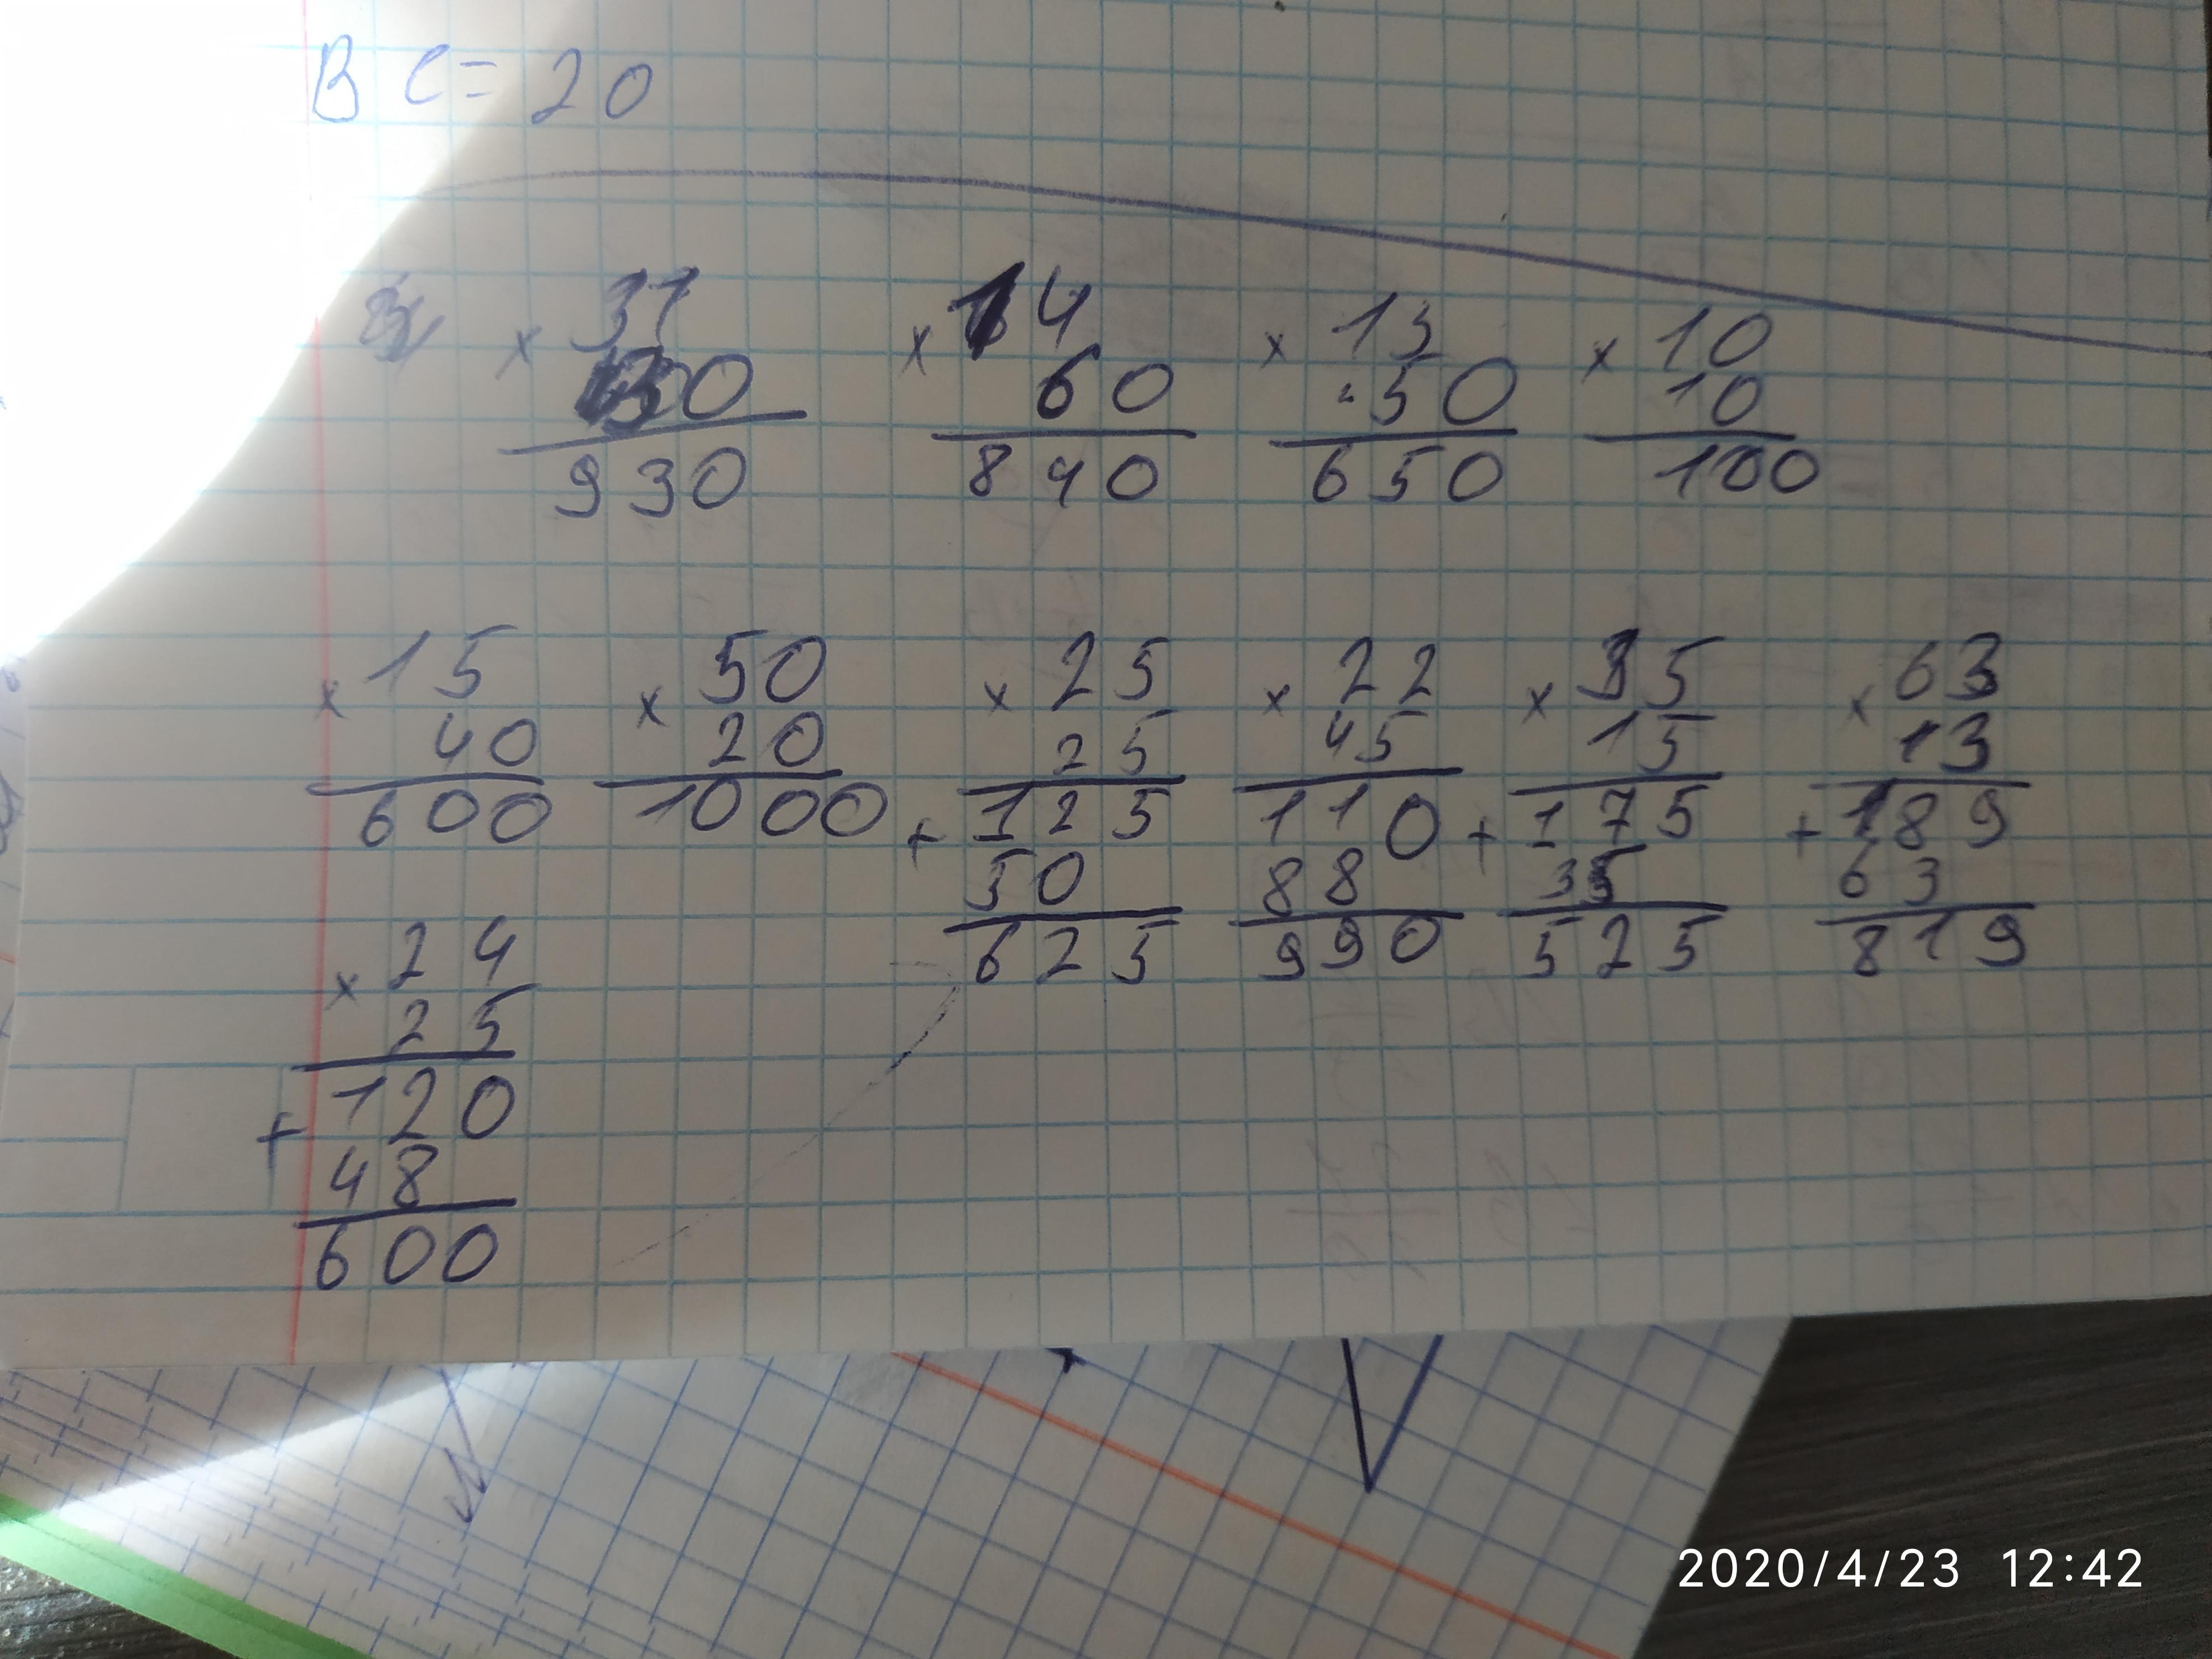 BC = 20
× 31 × 14 × 13 × 10
30 60 50 10
930 840 650 100
× 15 × 50 × 25 × 22 × 35 × 63
40 20 25 45 15 13
600 1000 + 125 110 + 175 + 189
50 88 35 63
625 990 525 819
× 24
25
+ 120
48
600
2020/4/23 12:42